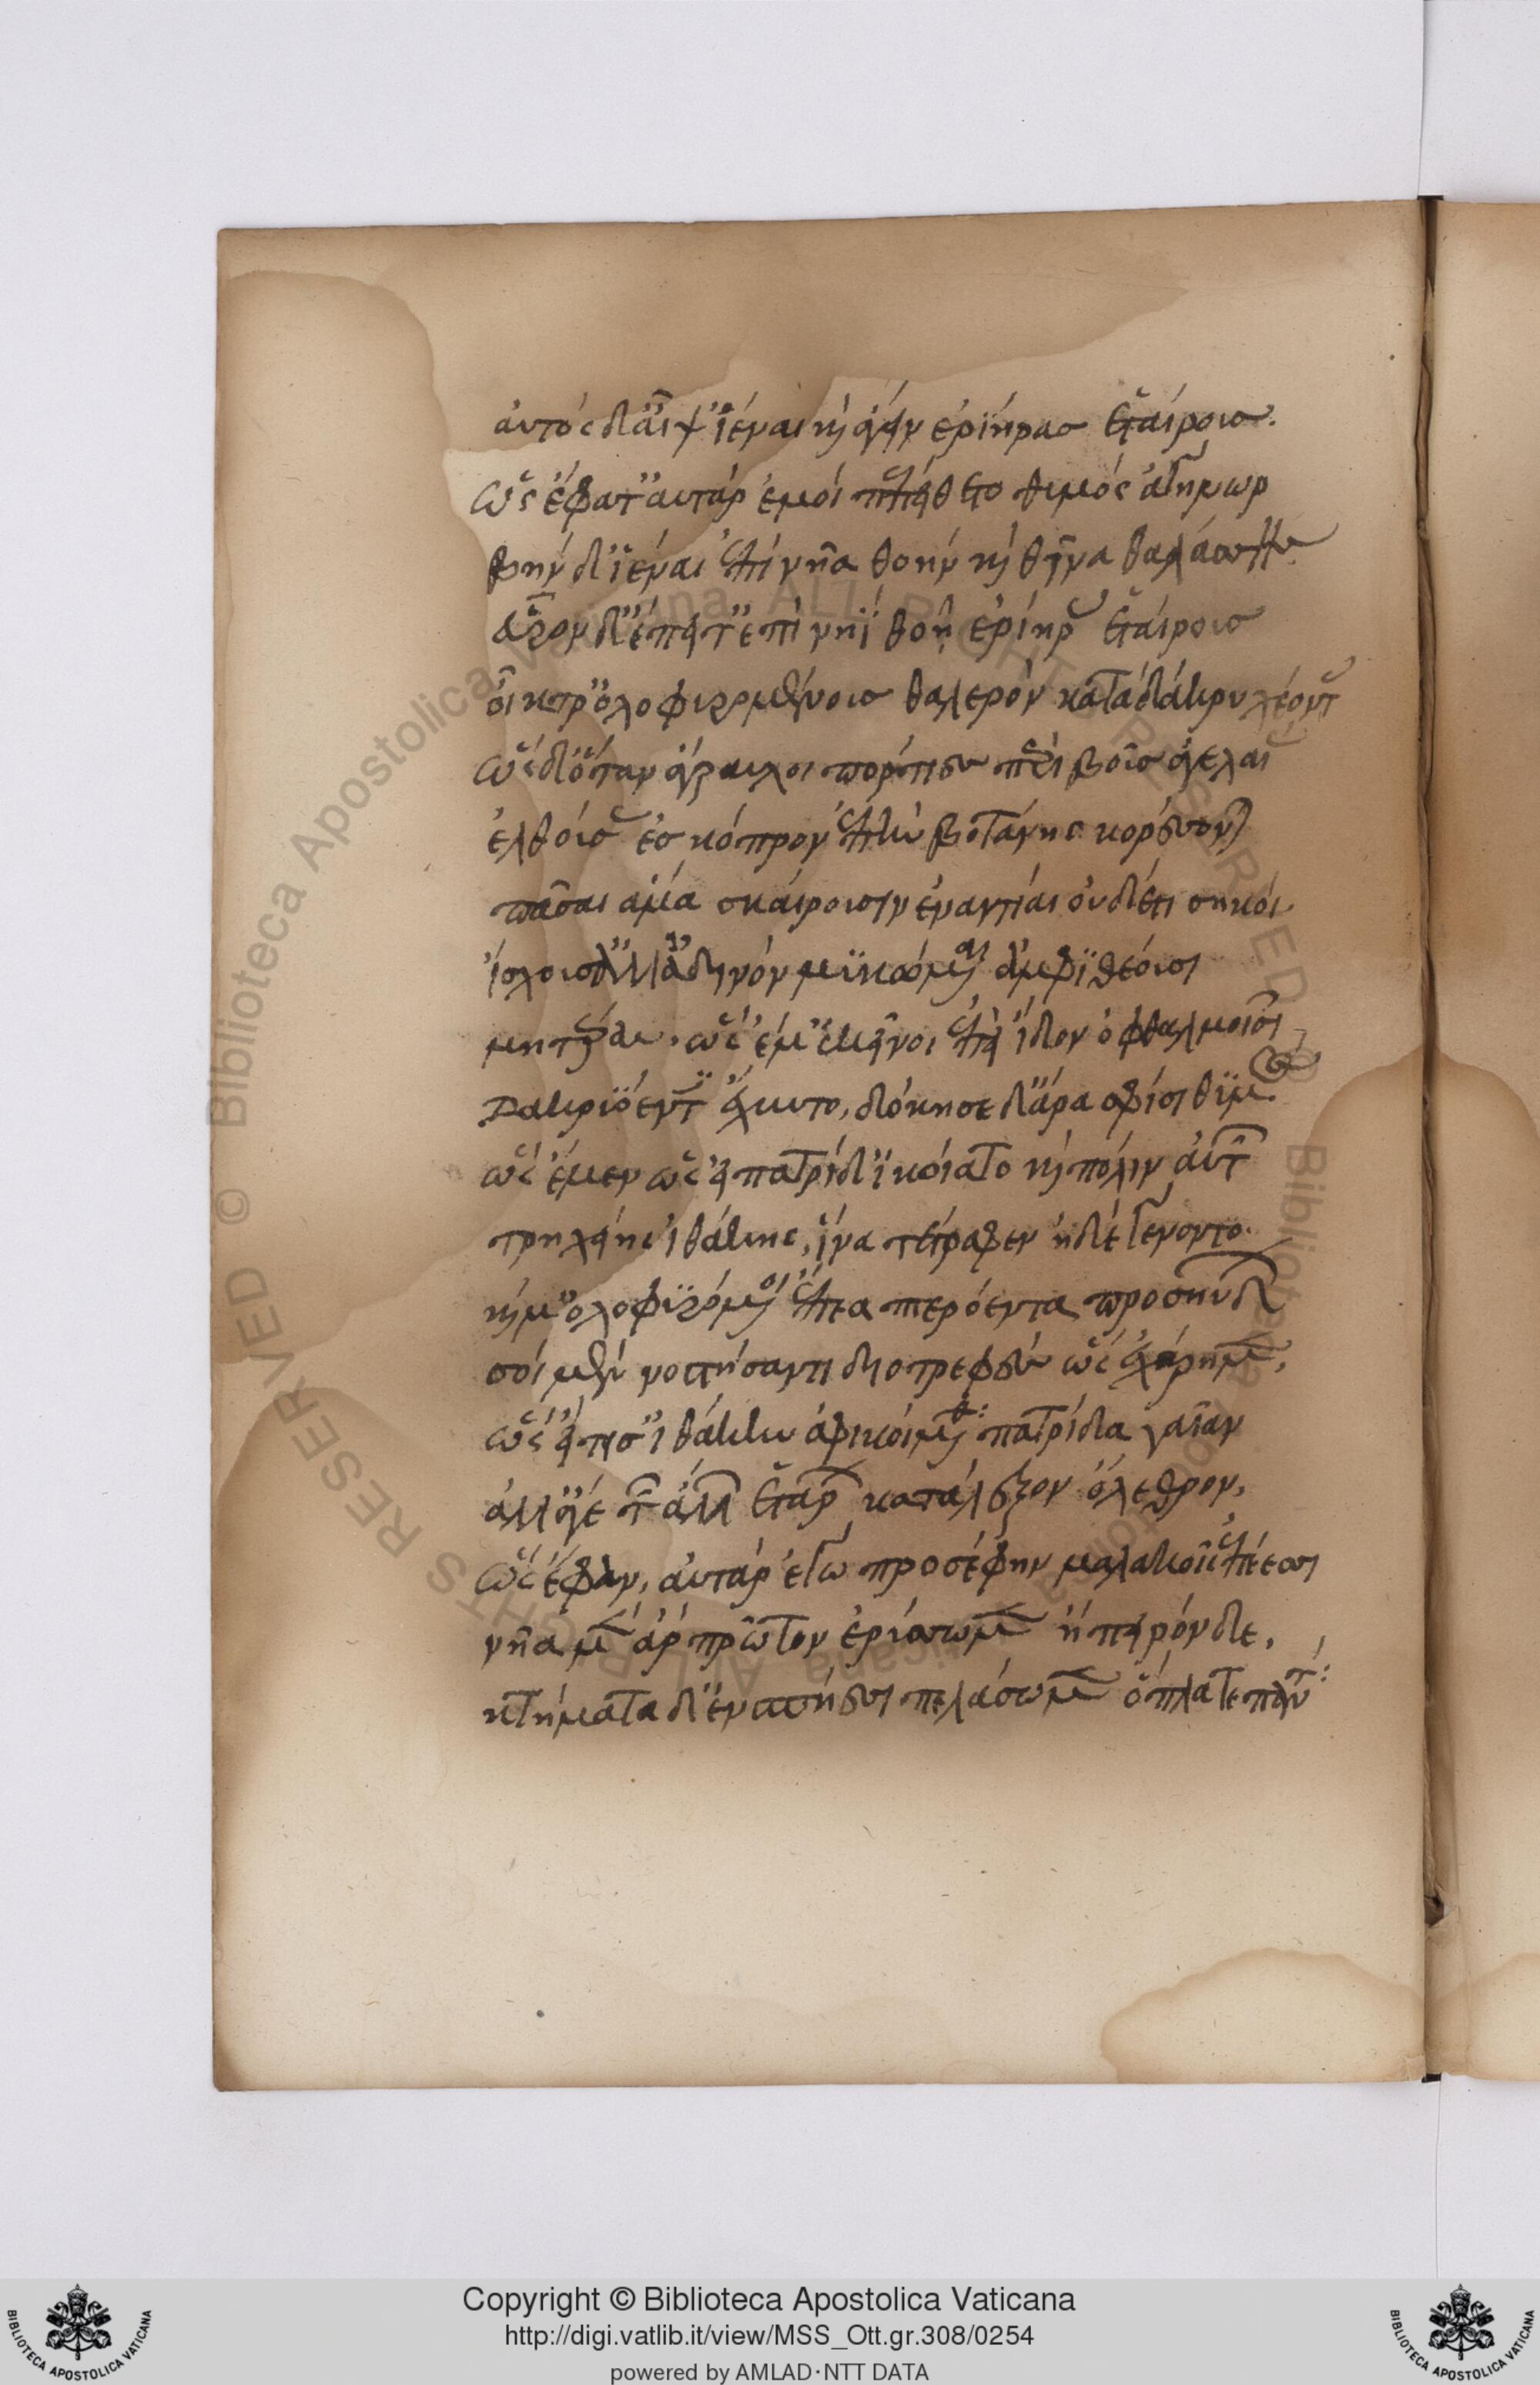 αὐτὸς δ' ἂψ ἰέναι καὶ ἄγειν ἐρίηρας ἑταίρους.
ὣς ἔφατ' αὐτὰρ ἐμοί γ' ἐπεπείθετο θυμὸς ἀγήνωρ
βῆν δ' ἰέναι ἐπὶ νῆα θοὴν καὶ θῖνα θαλάσσης.
εὗρον δ' ἔπειτ' ἐπὶ νηῒ θοῇ ἐρίηρας ἑταίρους
οἴκτρ' ὀλοφυρομένους θαλερὸν κατὰ δάκρυ χέοντας
ὡς δ' ὅταν ἄγραυλοι πόριες περὶ βοῦς ἀγελαίας
ἐλθούσας ἐς κόπρον ἐπὴν βοτάνης κορέσωνται
πᾶσαι ἅμα σκαίρουσιν ἐναντίαι οὐδ' ἔτι σηκοὶ
ἴσχουσ' ἀλλ' ἁδινὸν μυκώμεναι ἀμφιθέουσι
μητέρας. ὣς ἐμ' ἐκεῖνοι ἐπεὶ ἴδον ὀφθαλμοῖσι
Δακρυόεντες ἔχυντο, δόκησε δ' ἄρα σφίσι θυμὸς
ὣς ἔμεν ὡς εἰ πατρίδ' ἱκοίατο καὶ πόλιν αὐτὴν
τρηχείης ἰθάκης, ἵνα τ' ἔτραφεν ἠδὲ γένοντο.
καί μ' ὀλοφυρόμενοι ἔπεα πτερόεντα προσηύδων
σοὶ μὲν νοστήσαντι διοτρεφὲς ὣς ἐχάρημεν,
ὡς εἴ τ' εἰς ἰθάκην ἀφικοίμεθα πατρίδα γαῖαν
ἀλλ' ἄγε τῶν ἄλλων ἑτάρων κατάλεξον ὄλεθρον,
ὣς ἔφαν, αὐτὰρ ἐγὼ προσέφην μαλακοῖς ἐπέεσσι
νῆα μὲν ἂρ πρῶτον ἐρύσσωμεν ἤπειρόνδε,
κτήματα δ' ἐν σπήεσσι πελάσσωμεν ὅπλα τε πάντα: